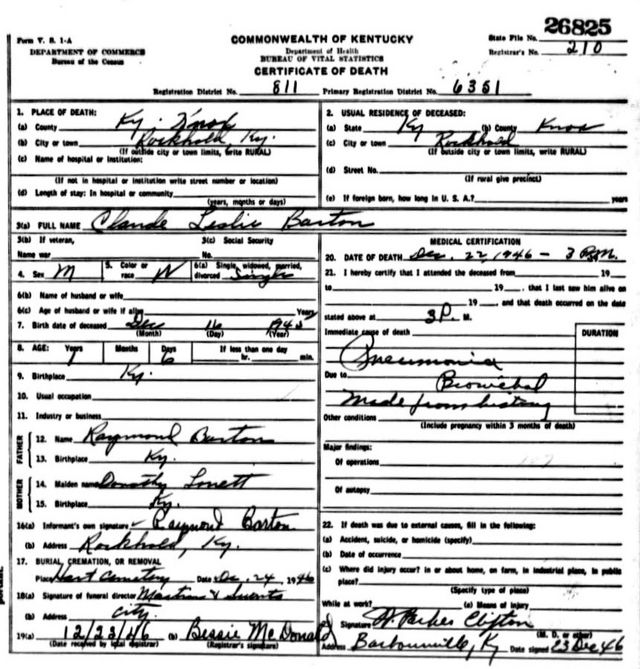 26825
Form V. S. 1-A
COMMONWEALTH OF KENTUCKY
State File No.
DEPARTMENT OF COMMERCE
Department of Health
Registrar's No. 210
Bureau of the Census
BUREAU OF VITAL STATISTICS
CERTIFICATE OF DEATH
Registration District No. 811 Primary Registration District No. 6351
1. PLACE OF DEATH:
(a) County Ky. Knox
(b) City or town Rockhold, Ky.
(If outside city or town limits, write RURAL)
(c) Name of hospital or institution:
(If not in hospital or institution write street number or location)
(d) Length of stay: In hospital or community
(years, months or days)
2. USUAL RESIDENCE OF DECEASED:
(a) State Ky (b) County Knox
(c) City or town Rockhold
(If outside city or town limits, write RURAL)
(d) Street No.
(If rural give precinct)
(e) If foreign born, how long in U. S. A.? years
3(a) FULL NAME Claude Leslie Barton
3(b) If veteran, 3(c) Social Security
Name war No.
4. Sex M 5. Color or race W 6(a) Single, widowed, married, divorced Single
6(b) Name of husband or wife
6(c) Age of husband or wife if alive Years
7. Birth date of deceased Dec 16 1945
(Month) (Day) (Year)
8. AGE: Years Months Days If less than one day
1 6 hr. min.
9. Birthplace Ky.
10. Usual occupation
11. Industry or business
FATHER
12. Name Raymond Barton
13. Birthplace Ky.
MOTHER
14. Maiden name Dorothy
15. Birthplace Ky.
16(a) Informant's own signature Raymond Barton
(b) Address Rockhold, Ky.
17. BURIAL, CREMATION, OR REMOVAL
Place Hart Cemetery Date Dec. 24, 1946
18(a) Signature of funeral director
(b) Address City.
19(a) 12/23/46 (b) Bessie McDonald
(Date received by local registrar) (Registrar's signature)
MEDICAL CERTIFICATION
20. DATE OF DEATH Dec. 22 1946 - 3 P.M.
21. I hereby certify that I attended the deceased from 19
to 19 , that I last saw him alive on
19 , and that death occurred on the date
stated above at 3P. M.
Immediate cause of death DURATION
Pneumonia
Due to
Bronchial
Made from history
Other conditions
(Include pregnancy within 3 months of death)
Major findings:
Of operations
Of autopsy
22. If death was due to external causes, fill in the following:
(a) Accident, suicide, or homicide (specify)
(b) Date of occurrence
(c) Where did injury occur? in or about home, on farm, in industrial place, in public
place?
(Specify type of place)
While at work? (e) Means of injury
Signature
(M. D. or other)
Address Barbourville, Ky Date signed 23 Dec 46